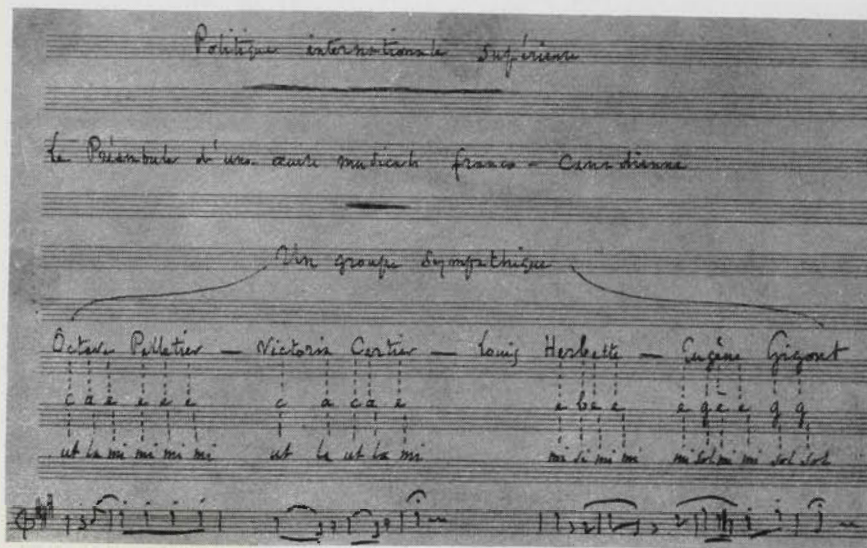 Politique internationale supérieure
Le Préambule d'une œuvre musicale franco-canadienne
Un groupe sympathique
Octave Pelletier — Victoria Cartier — Louis Herbette — Eugène Gigout
c a e e e e c a c a e e b e e e g è e g g
ut la mi mi mi mi ut la ut la mi mi si mi mi mi sol mi mi sol sol